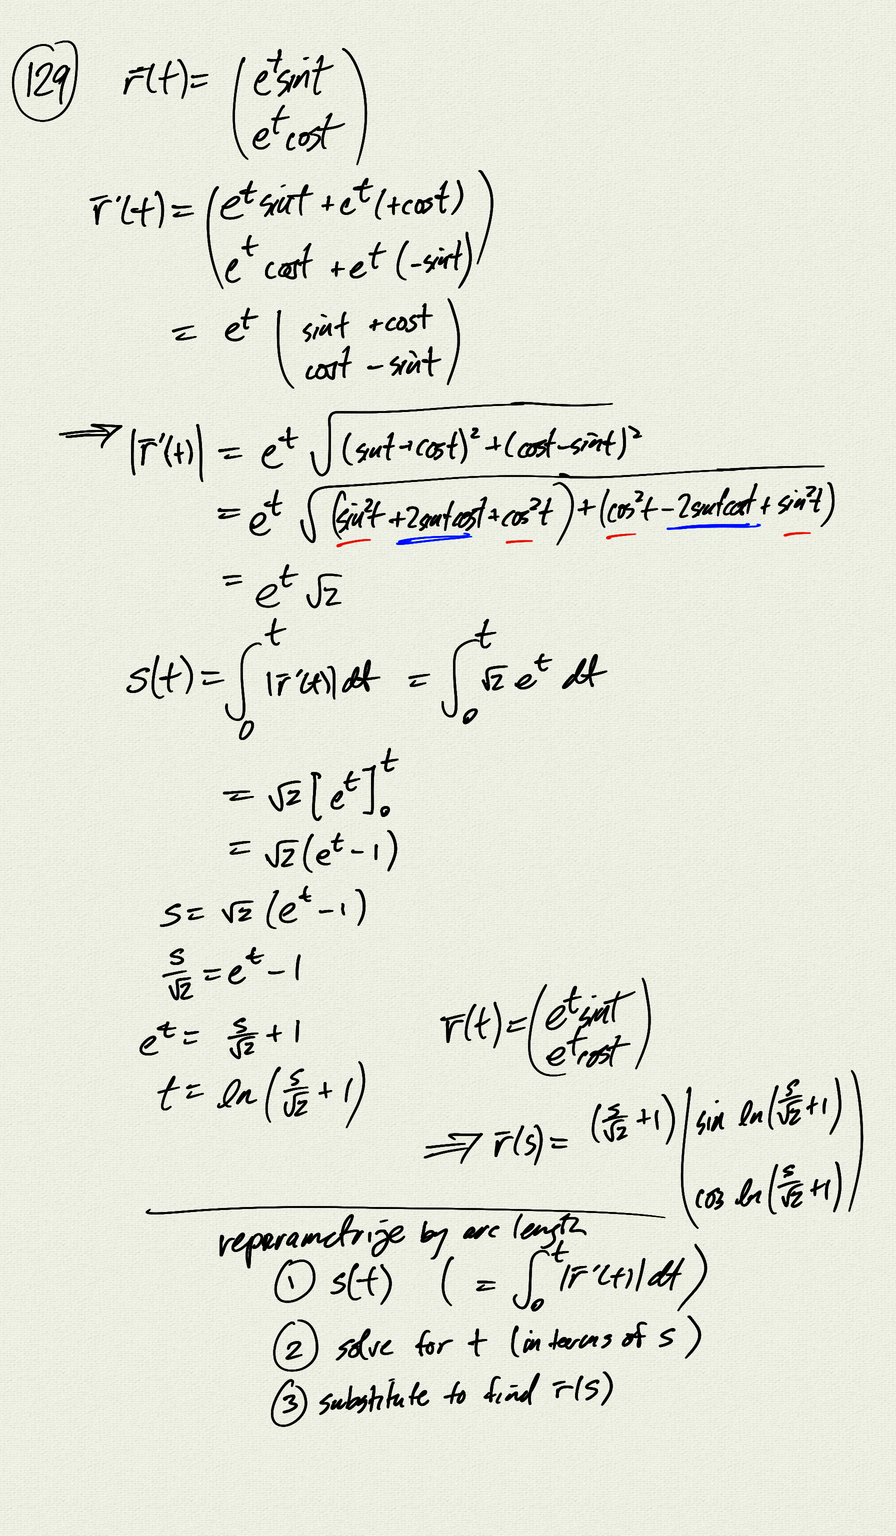 129 r̄(t) = (e^t sint
e^t cost)
r̄'(t) = (e^t sint + e^t (+cost)
e^t cost + e^t (-sint))
= e^t (sint + cost
cost - sint)
⟹ |r̄'(t)| = e^t √((sint + cost)² + (cost - sint)²)
= e^t √((sin²t + 2sintcost + cos²t) + (cos²t - 2sintcost + sin²t))
= e^t √2
s(t) = ∫₀^t |r̄'(t)| dt = ∫₀^t √2 e^t dt
= √2 [e^t]₀^t
= √2 (e^t - 1)
s = √2 (e^t - 1)
s/√2 = e^t - 1
e^t = s/√2 + 1
t = ln(s/√2 + 1)
r̄(t) = (e^t sint
e^t cost)
⟹ r̄(s) = (s/√2 + 1) (sin ln(s/√2 + 1)
cos ln(s/√2 + 1))
reparametrize by arc length
① s(t) ( = ∫₀^t |r̄'(t)| dt)
② solve for t (in terms of s)
③ substitute to find r̄(s)